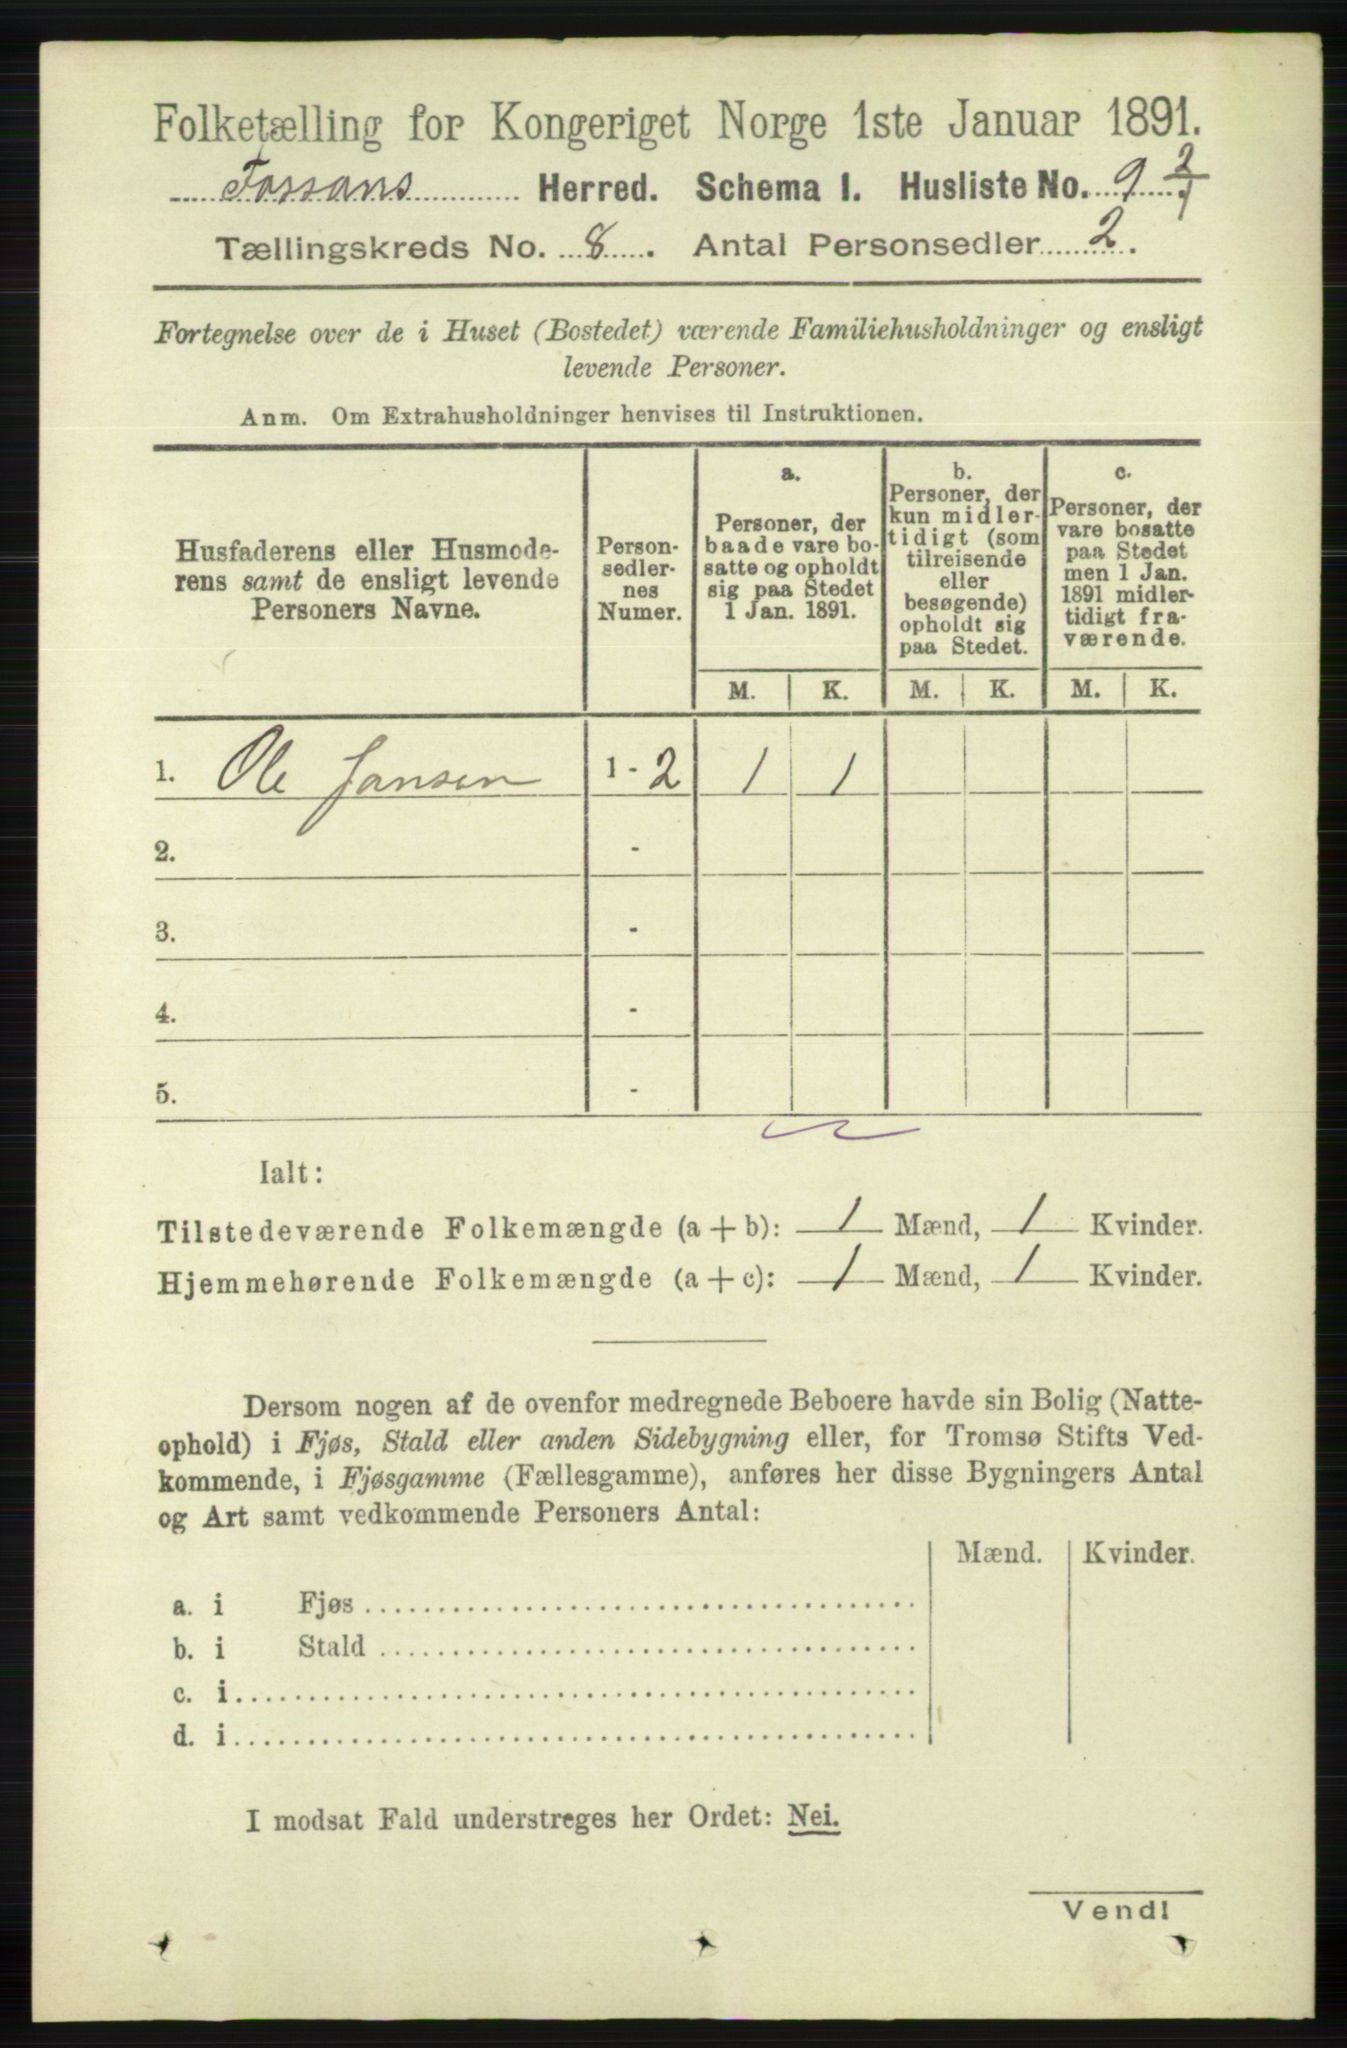 Folketælling for Kongeriget Norge 1ste Januar 1891.
Fossans Herred. Schema 1. Husliste No. 9 2/1
Tællingskreds No. 8. Antal Personsedler 2.
Fortegnelse over de i Huset (Bostedet) værende Familiehusholdninger og ensligt
levende Personer.
Anm. Om Extrahusholdninger henvises til Instruktionen.
Husfaderens eller Husmode-
rens samt de ensligt levende
Personers Navne.
Person-
sedler-
nes
Numer.
a.
Personer, der
baade vare bo-
satte og opholdt
sig paa Stedet
1 Jan. 1891.
b.
Personer, der
kun midler-
tidigt (som
tilreisende
eller
besøgende)
opholdt sig
paa Stedet.
c.
Personer, der
vare bosatte
paa Stedet
men 1 Jan.
1891 midler-
tidigt fra-
værende.
M. K. M. K. M. K.
1. Ole Jansen 1 - 2 1 1
2. -
3. -
4. -
5. -
Ialt:
Tilstedeværende Folkemængde (a + b): 1 Mænd, 1 Kvinder.
Hjemmehørende Folkemængde (a + c): 1 Mænd, 1 Kvinder.
Dersom nogen af de ovenfor medregnede Beboere havde sin Bolig (Natte-
ophold) i Fjøs, Stald eller anden Sidebygning eller, for Tromsø Stifts Ved-
kommende, i Fjøsgamme (Fællesgamme), anføres her disse Bygningers Antal
og Art samt vedkommende Personers Antal:
Mænd. Kvinder.
a. i Fjøs
b. i Stald
c. i
d. i
I modsat Fald understreges her Ordet: Nei.
Vend!